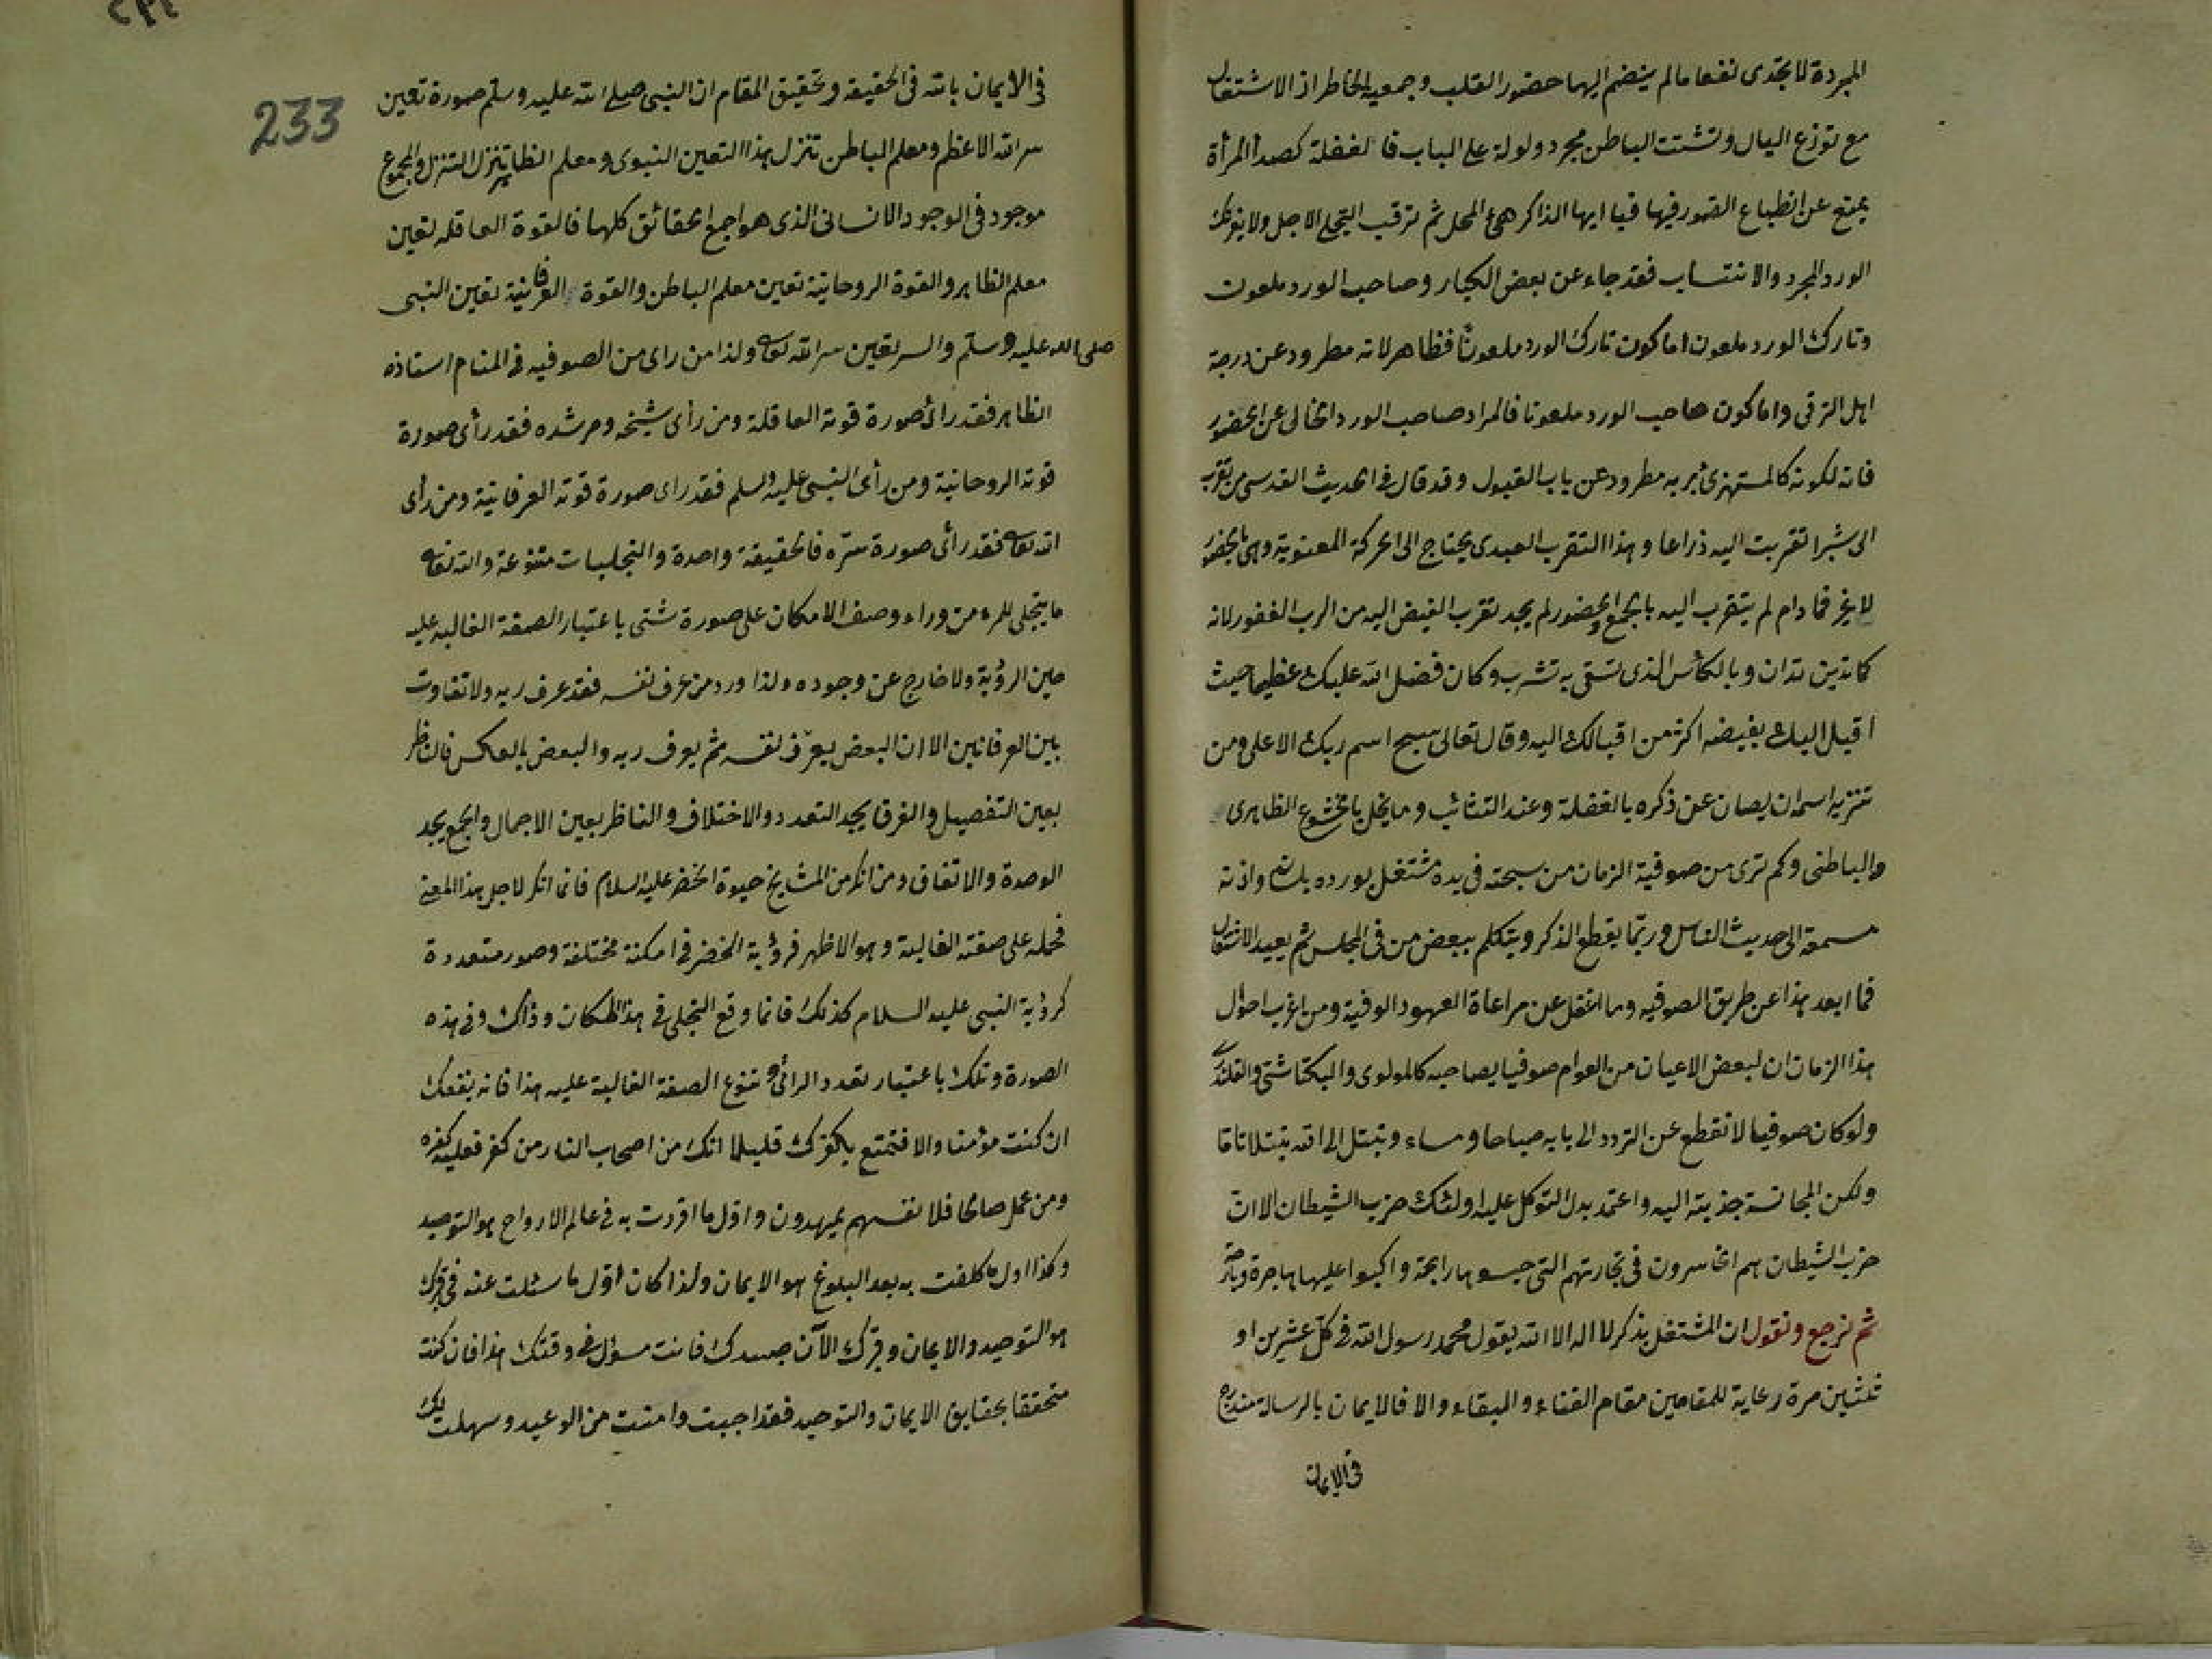 المجردة لا تجدى نفعا مالم ينضم اليها حضور القلب وجمعية الخاطر اذ الاشتغال
مع توزع البال وتشتت الباطن مجرد ولولة على الباب فالغفلة كصدأ المرأة
يمنع عن انطباع الصور فيها فيا ايها الذاكر هئ المحل ثم ترقب التجلى الاجل ولا يغرنك
الورد المجرد والانتساب فقد جاء عن بعض الكبار وصاحب الورد ملعون
وتارك الورد ملعون اما كون تارك الورد ملعونا فظاهر لانه مطرود عن درجة
اهل الترقى واما كون صاحب الورد ملعونا فالمراد صاحب الورد الخالى عن الحضور
فانه لكونه كالمستهزئ بربه مطرود عن باب القبول وقد قال فى الحديث القدسى من تقرب
الى شبرا تقربت اليه ذراعا وهذا التقرب العبدى يحتاج الى الحركة المعنوية وهى بالحضور
لا غير فما دام لم يتقرب اليه بالجمع والحضور لم يجد تقرب الفيض اليه من الرب الغفور لانه
كما تدين تدان وبالكأس الذى تسقى به تشرب وكان فضل الله عليك عظيما حيث
اقبل اليك بفيضه اكثر من اقبالك اليه وقال تعالى سبح اسم ربك الاعلى ومن
تنزيه اسمه ان يصان عن ذكره بالغفلة وعند التثائب وما يخل بالخشوع الظاهرى
والباطنى وكم ترى من صوفية الزمان من سبحته فى يده مشتغل بورده بلسانه واذنه
مسمعة الى حديث الناس وربما يقطع الذكر ويتكلم ببعض من فى المجلس ثم يعيد الاشتغال
فما ابعد هذا عن طريق الصوفيه وما اغفل عن مراعاة العهود الوفية ومن اغرب احوال
هذا الزمان ان لبعض الاعيان من العوام صوفيا يصاحبه كالمولوى والبكتاشى والقلندرى
ولو كان صوفيا لانقطع عن التردد الى بابه صباحا ومساء وتبتل الى الله تبتلا تاما
ولكن المجانسة جذبته اليه واعتمد بدل التوكل عليه اولئك حزب الشيطان الا ان
حزب الشيطان هم الخاسرون فى تجارتهم التى حسبوها رابحة واكبوا عليها هاجرة وبارحة
ثم نرجع ونقول ان المشتغل بذكر لا اله الا الله يقول محمد رسول الله فى كل عشرين او
ثلثين مرة رعاية للمقامين مقام الفناء والبقاء والا فالايمان بالرسالة مندرج
فى الايمان
233
فى الايمان بالله فى الحقيقه وتحقيق المقام ان النبى صلى الله عليه وسلم صورة تعين
سر الله الاعظم ومعلم الباطن تنزل هذا التعين النبوى ومعلم الظاهر تنزل التنزل والمجموع
موجود فى الوجود الانسانى الذى هو اجمع الحقائق كلها فالقوة العاقله تعين
معلم الظاهر والقوة الروحانية تعين معلم الباطن والقوة العرفانية تعين النبى
صلى الله عليه وسلم والسر تعين سر الله تعالى ولذا من راى من الصوفيه فى المنام استاذه
الظاهر فقد رأى صورة قوته العاقلة ومن رأى شيخه ومرشده فقد رأى صورة
قوته الروحانية ومن رأى النبى عليه السلم فقد راى صورة قوته العرفانية ومن رأى
الله تعالى فقد رأى صورة سره فالحقيقة واحدة والتجليات متنوعة والله تعالى
ما يتجلى للمرء من وراء وصف الامكان على صورة شتى باعتبار الصفة الغالبه عليه
حين الرؤية ولا خارج عن وجوده ولذا ورد من عرف نفسه فقد عرف ربه ولا تفاوت
بين العرفانين الا ان البعض يعرف نفسه ثم يعرف ربه والبعض بالعكس فالناظر
بعين التفصيل والفرق يجد التعدد والاختلاف والناظر بعين الاجمال والجمع يجد
الوحدة والاتفاق ومن انكر من المشايخ حيوة الخضر عليه السلام فانما انكر لاجل هذا المعنى
فحمله على صفته الغالبة وهو الاظهر فرؤية الخضر فى امكنة مختلفة وصور متعددة
كرؤية النبى عليه السلام كذلك فانما وقع التجلى فى هذا المكان وذاك وفى هذه
الصورة وتلك باعتبار تعدد الرائى وتنوع الصفة الغالبة عليه هذا فانه ينفعك
ان كنت مؤمنا والا فتمتع بكفرك قليلا انك من اصحاب النار من كفر فعليه كفره
ومن عمل صالحا فلانفسهم يمهدون واول ما اقررت به فى عالم الارواح هو التوحيد
وكذا اول ما كلفت به بعد البلوغ هو الايمان ولذا كان اول ما سئلت عنه فى قبرك
هو التوحيد والايمان وقبرك الآن جسدك فانت مسؤل فى وقتك هذا فان كنت
متحققا بحقايق الايمان والتوحيد فقد اجبت وامنت من الوعيد وسهلت لك